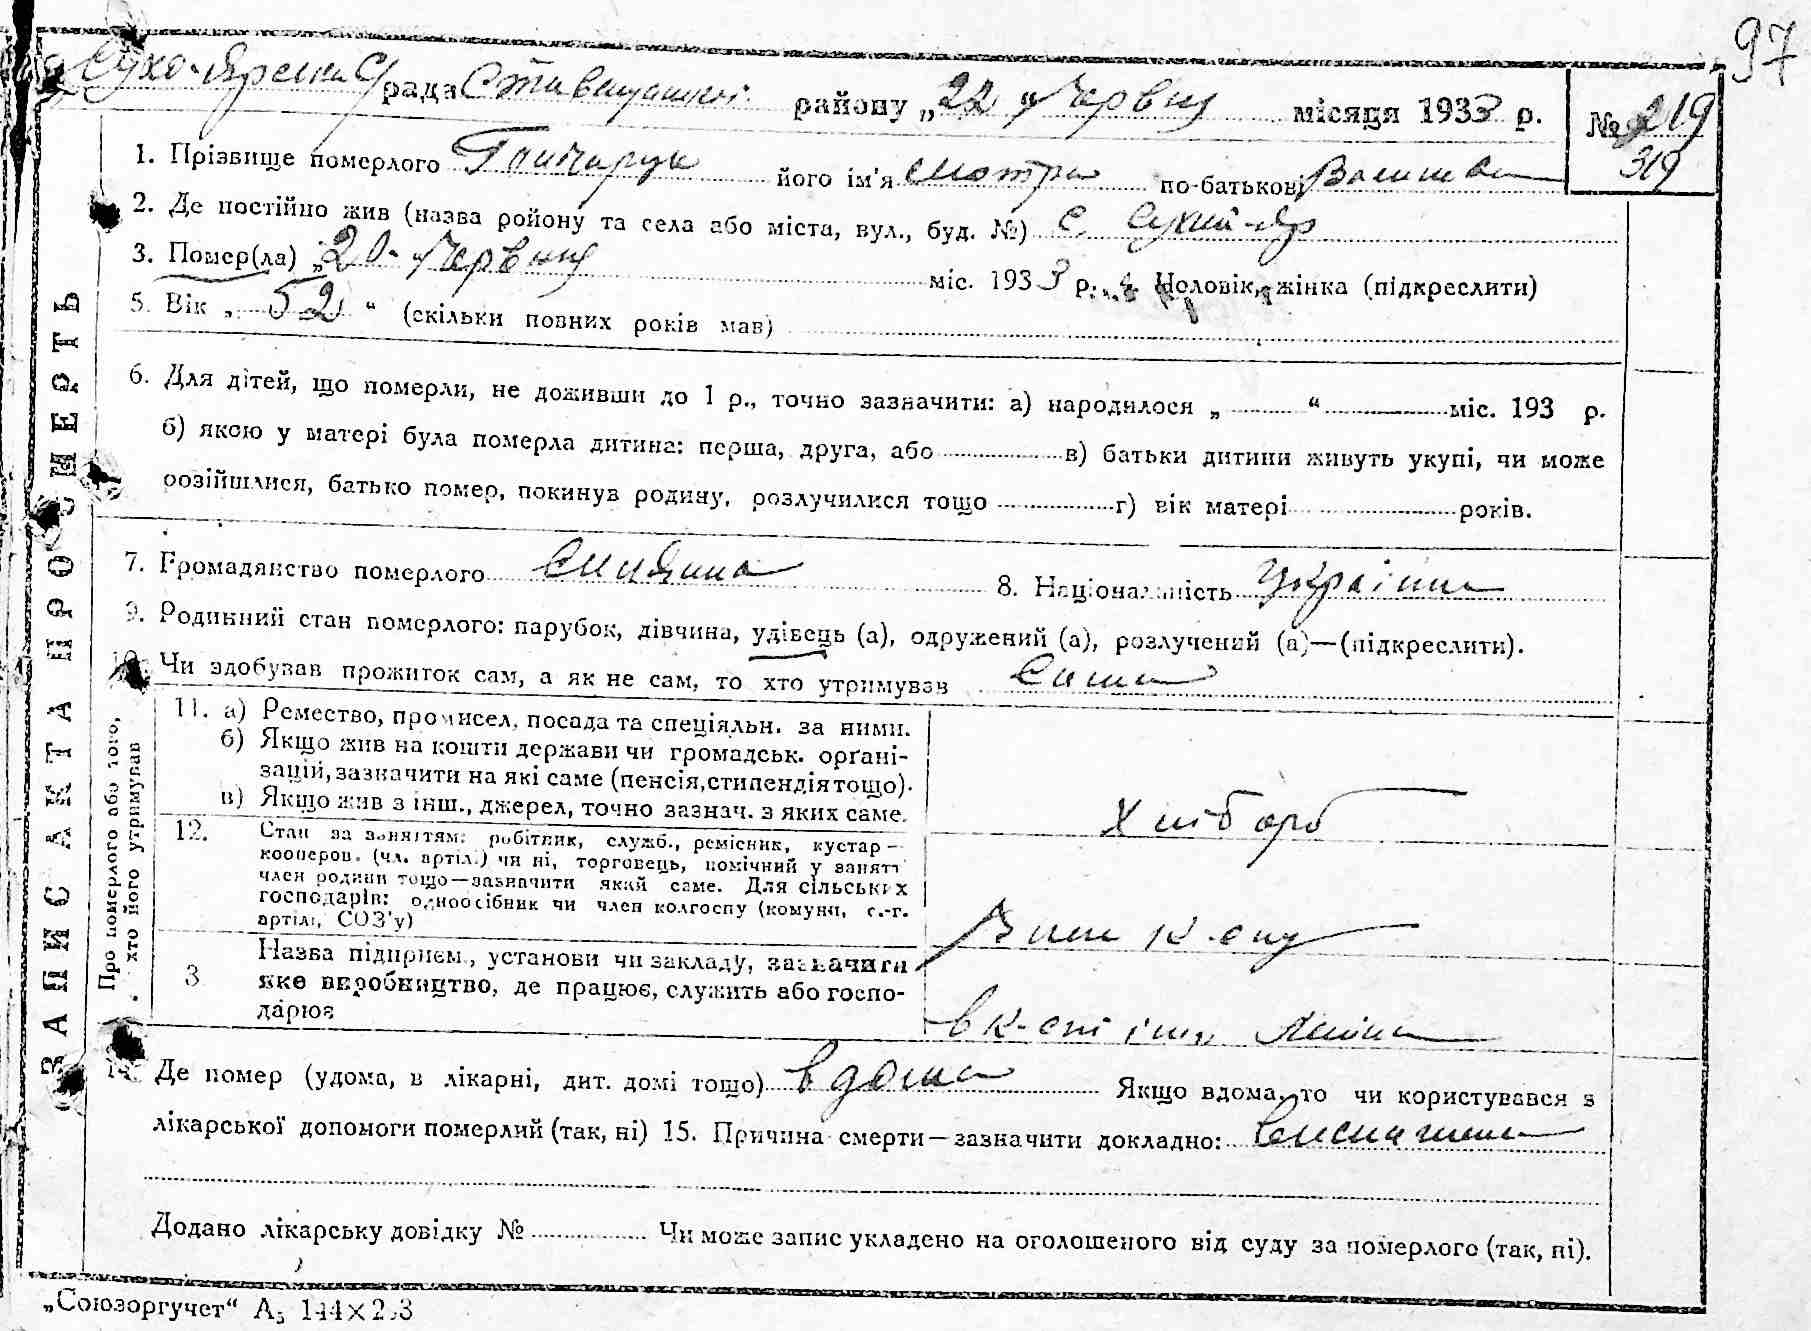 97
Сухо-Ярська С/рада Ставищанськ. району „22“ Червня місяця 1933 р. № 219
319
1. Прізвище померлого Гончарук його ім'я Мотря по-батькові
2. Де постійно жив (назва ройону та села або міста, вул., буд. №) с. Сухий-Яр
3. Помер(ла) „20“ Червня міс. 1933 р. 4. Чоловік, жінка (підкреслити)
5. Вік „52“ (скільки повних років мав)
6. Для дітей, що померли, не доживши до 1 р., точно зазначити: а) народилося „ “ міс. 193 р.
б) якою у матері була померла дитина: перша, друга, або в) батьки дитини живуть укупі, чи може
розійшлися, батько помер, покинув родину, розлучилися тощо г) вік матері років.
7. Громадянство померлого 8. Національність Україн
9. Родинний стан померлого: парубок, дівчина, удівець (а), одружений (а), розлучений (а)—(підкреслити).
10. Чи здобував прожиток сам, а як не сам, то хто утримував Сама
11. а) Ремество, промисел, посада та спеціяльн. за ними.
б) Якщо жив на кошти держави чи громадськ. орґані-
зацій, зазначити на які саме (пенсія, стипендія тощо).
в) Якщо жив з інш., джерел, точно зазнач. з яких саме.
Хлібороб
12. Стан за заняттям: робітник, служб., ремісник, кустар—
кооперов. (чл. артіл.) чи ні, торговець, помічний у занятт
член родини тощо—зазначити який саме. Для сільських
господарів: одноосібник чи член колгоспу (комуни, с.-г.
артілі, СОЗ'у)
Член к-спу
3 Назва підприєм., установи чи закладу, зазначити
яке виробництво, де працює, служить або госпо-
дарює
в к-спі ім. Леніна
Де помер (удома, в лікарні, дит. домі тощо) вдома Якщо вдома, то чи користувався з
лікарської допомоги померлий (так, ні) 15. Причина смерти—зазначити докладно: Виснаження
Додано лікарську довідку № Чи може запис укладено на оголошеного від суду за померлого (так, ні).
„Союзоргучет“ А5
ЗАПИС АКТА ПРО СМЕРТЬ
Про померлого або того,
хто його утримував